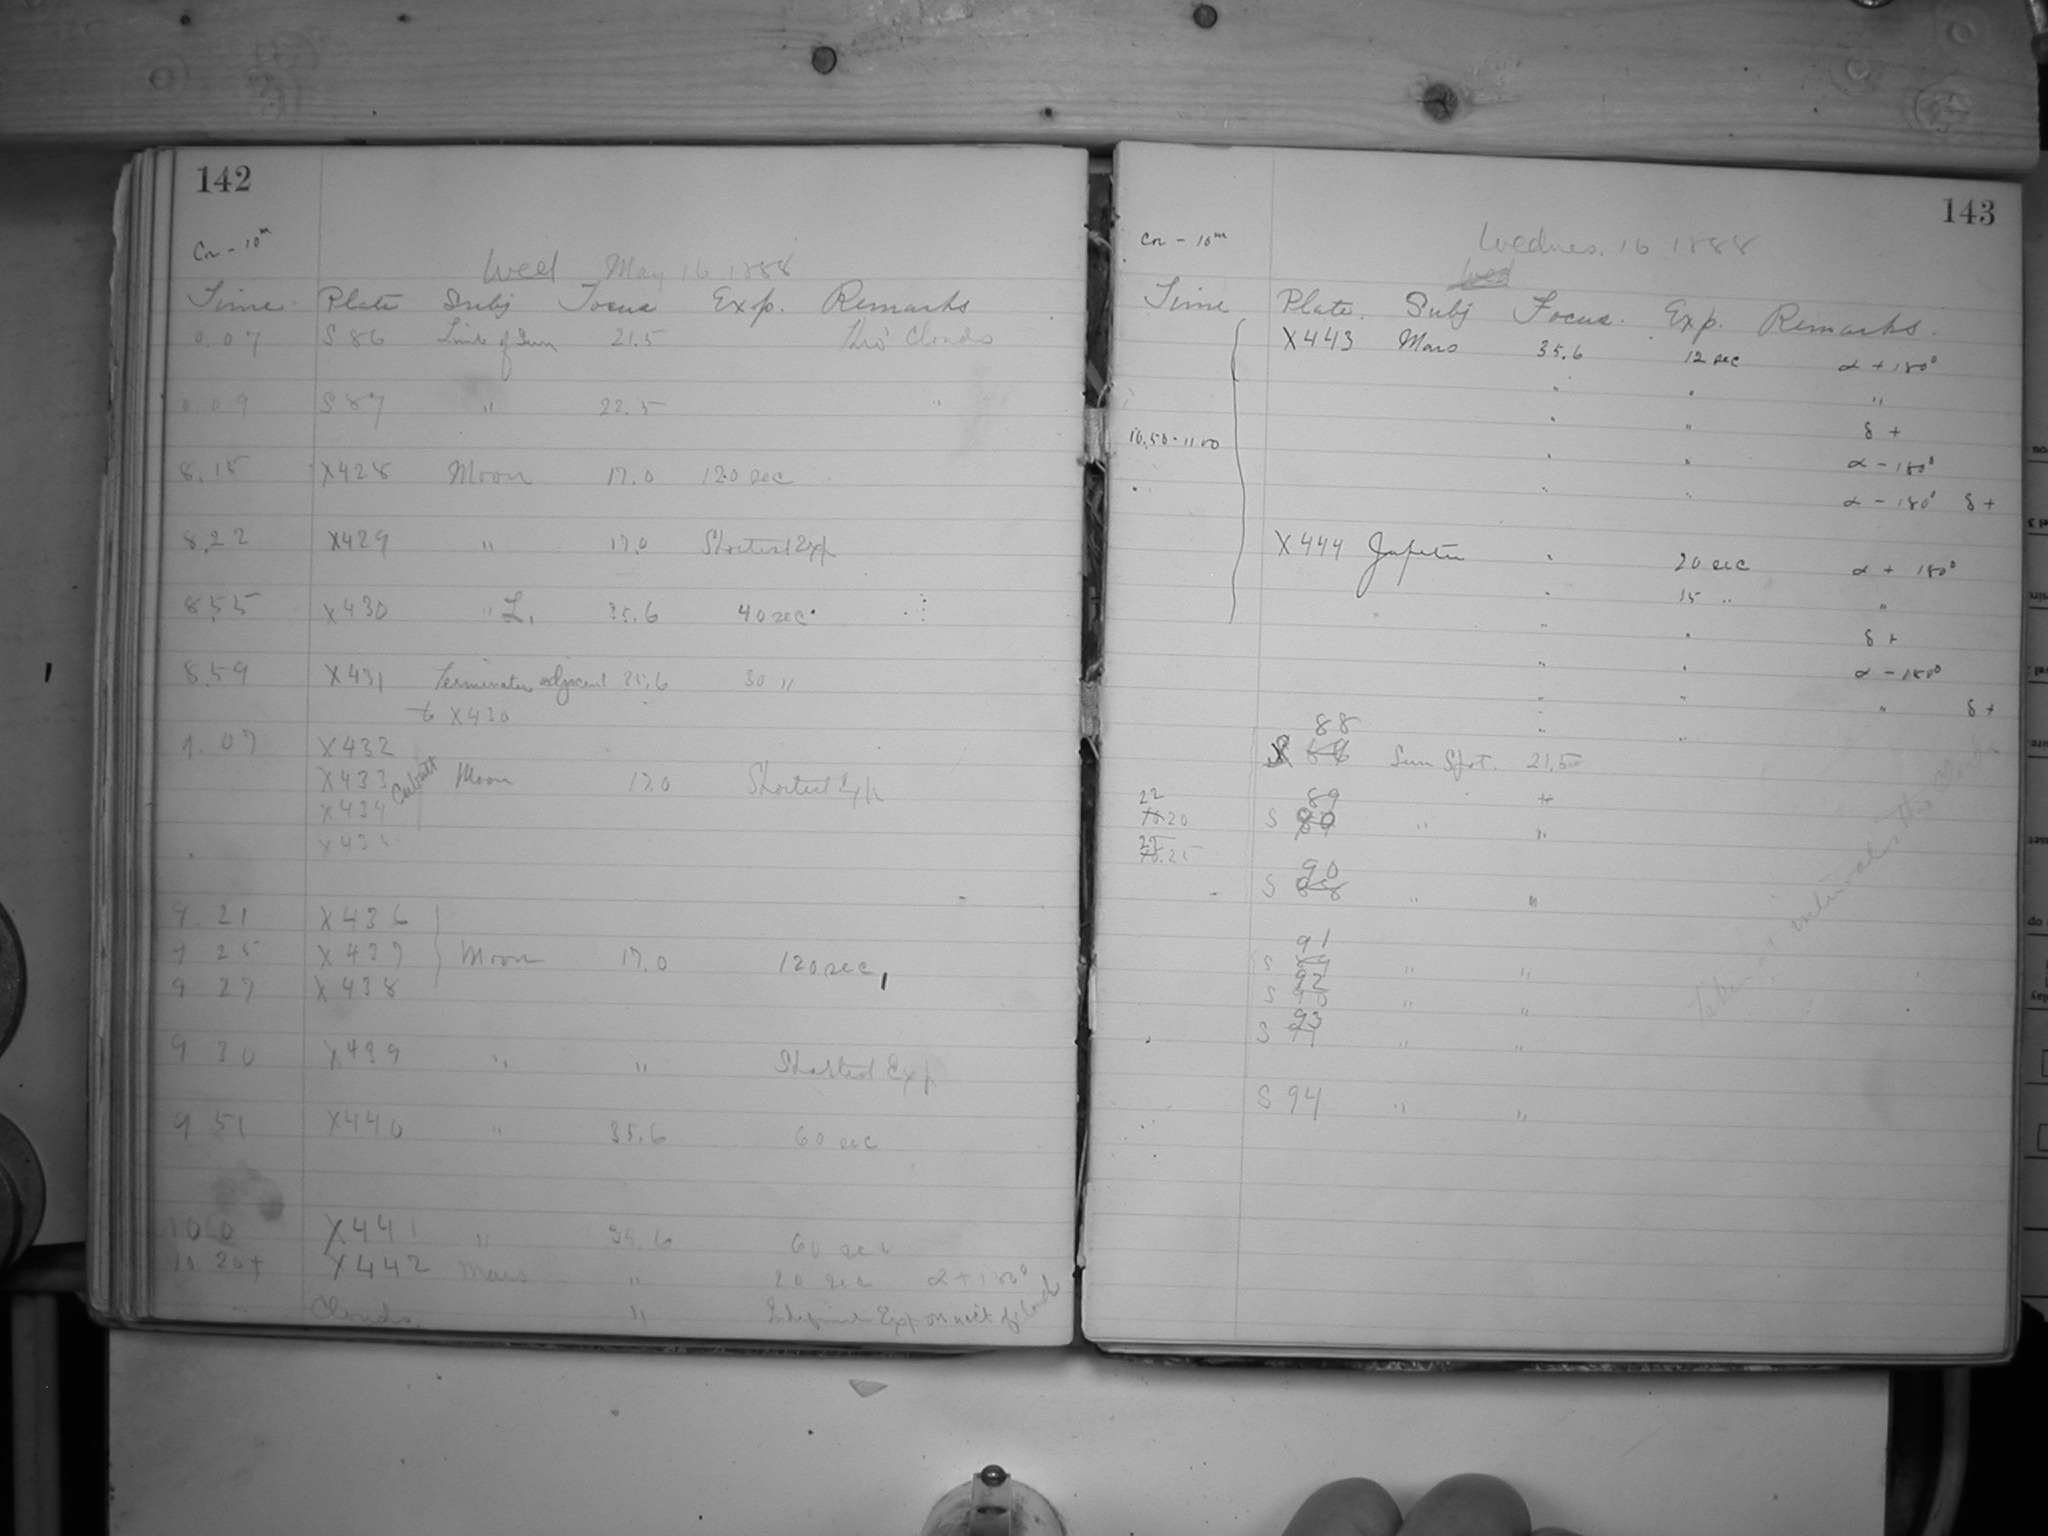 142
Cor - 10m
Wed May 16 1888
Time Plate Subj Focus Exp. Remarks
0.07 S 86 Limb of Sun 21.5 thro' Clouds
0 09 S 87 " 22.5 "
8.15 X428 Moon 17.0 120 sec
8.22 X429 " 17.0 Shortest Exp
8.55 X430 " L, 35.6 40 sec
8.59 X431 Terminator adjacent 35.6 30 "
to X430
9.07 X432
X433 Moon 17.0 Shortest Exp
X434
X435
9.21 X436
9 25 X437 Moon 17.0 120 sec
9 27 X438
9 30 X439 " " Shortest Exp
9 51 X440 " 35.6 60 sec
10 0 X441 " 35.6 60 sec
10 20+ X442 Mars " 20 sec α + 180°
Clouds " Indefinite Exp on acct of Clouds
143
Cor - 10m
Wednes. 16 1888
Wed
Time Plate. Subj Focus. Exp. Remarks.
X443 Mars 35.6 12 sec α + 180°
" " "
" " δ +
10.50-11.00
" " α - 180°
" " α - 180° δ +
X444 Jupiter " 20 sec α + 180°
" 15 " "
" " δ +
" " α - 180°
" " " δ +
" "
88
S Sun Spot. 21.5
22 89 "
20 S " "
22
25
90
S " "
91
S " "
92
S " "
93
S " "
S 94 " "
Taken at intervals thro clouds